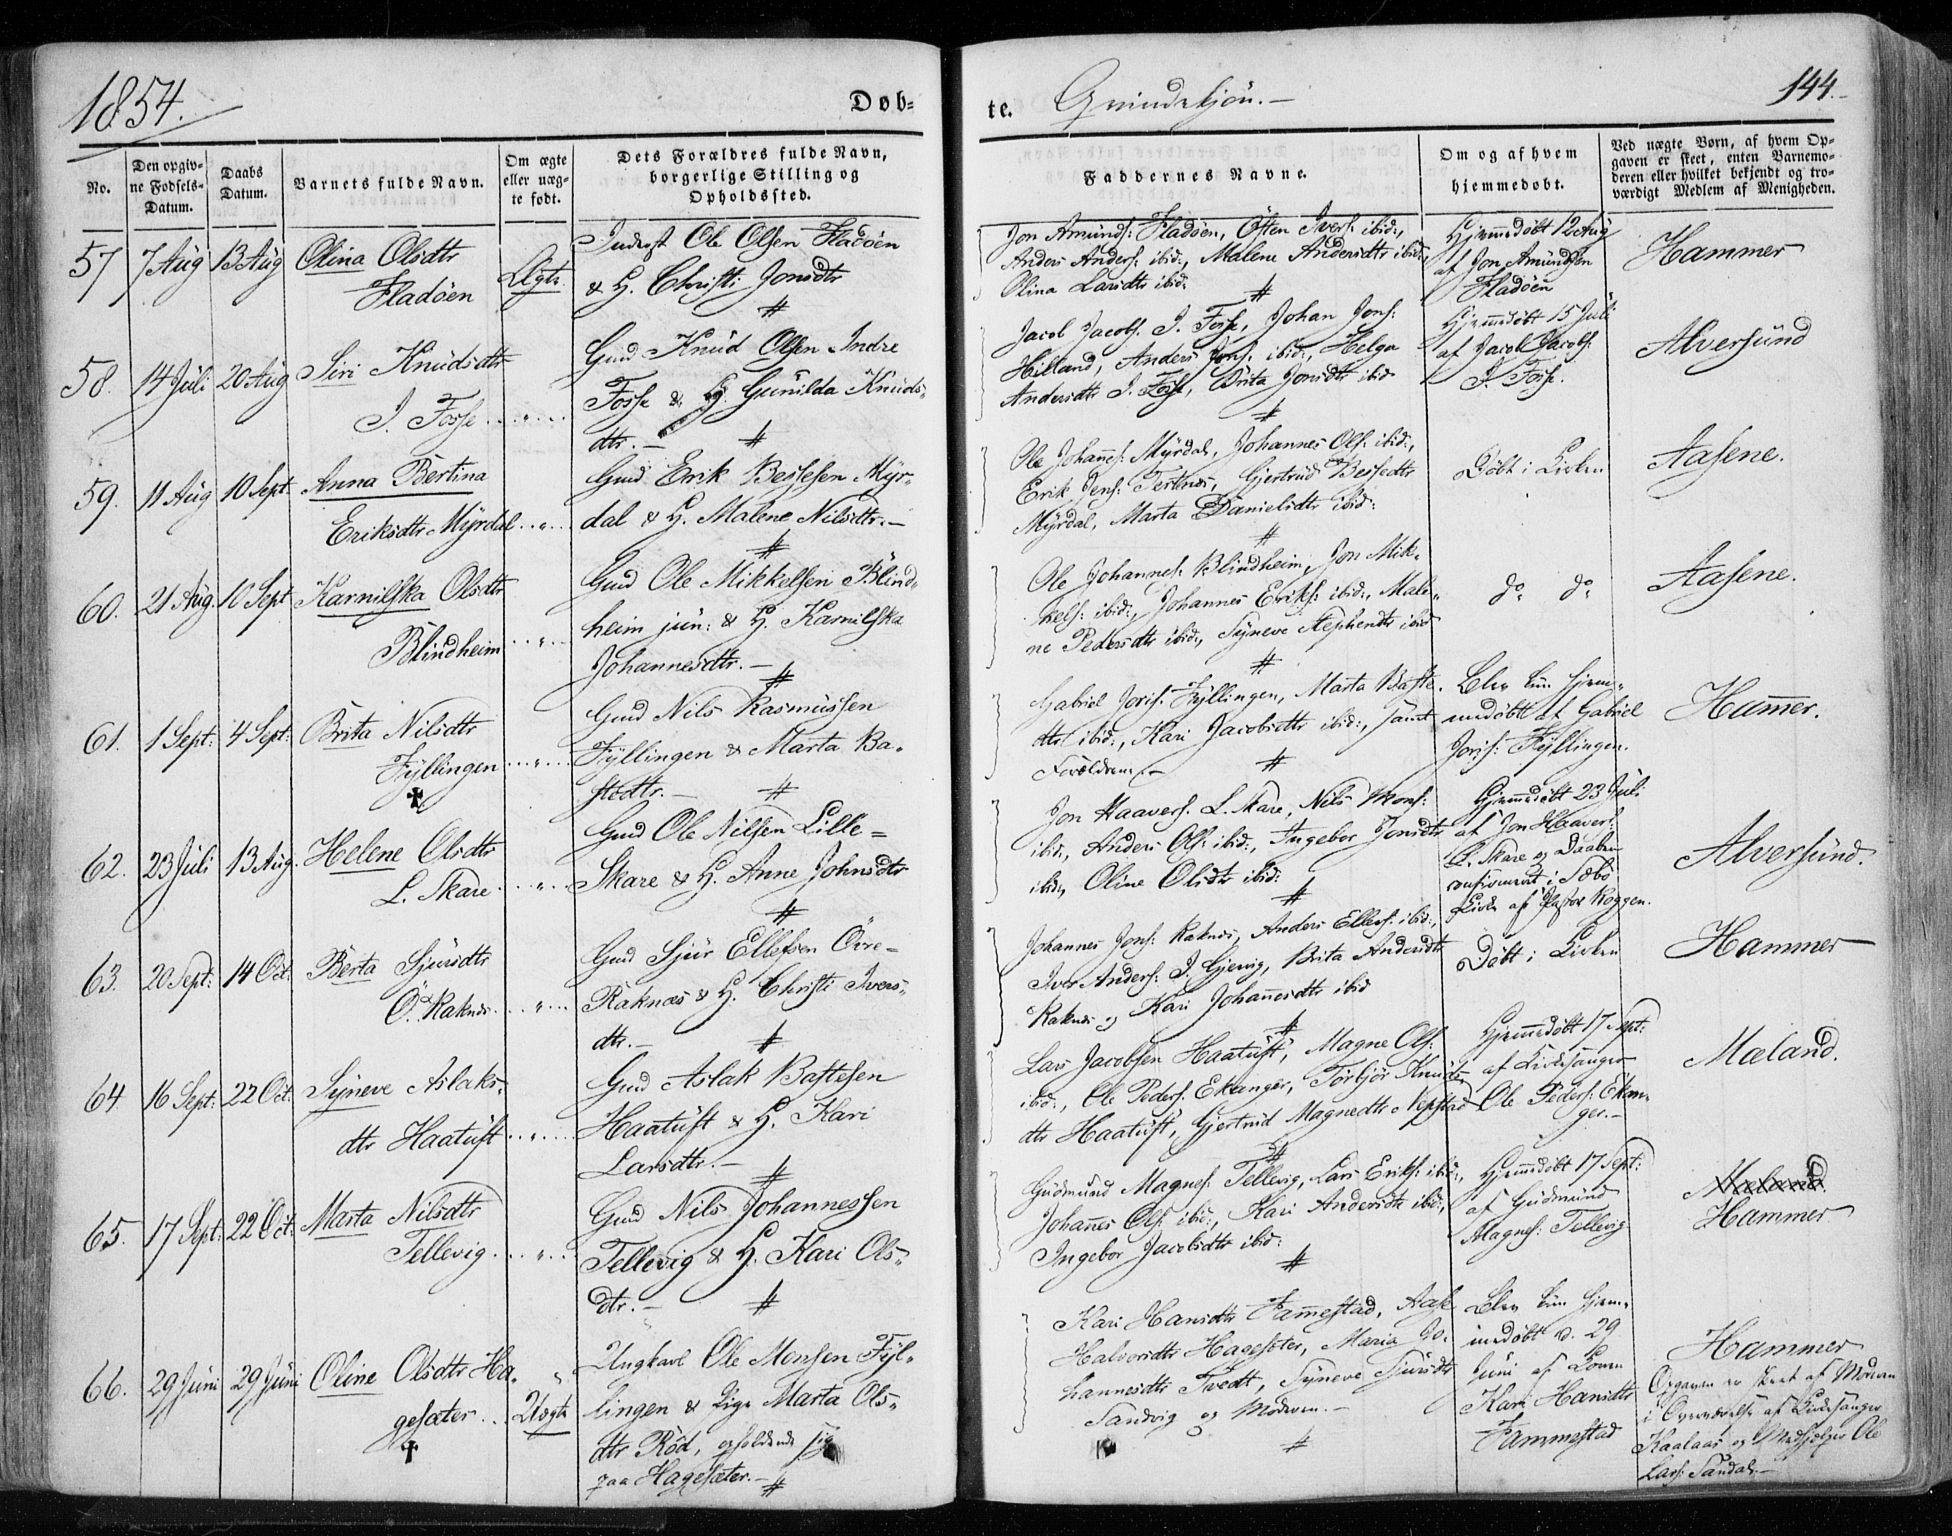 1854.
Døb-
te.
Qvindekjøn.-
144.-
No.
Den opgiv-
ne Fødsels-
Datum.
Daabs
Datum.
Barnets fulde Navn.
Om ægte
eller uæg-
te født.
Dets Forældres fulde Navn,
borgerlige Stilling og
Opholdssted.
Faddernes Navne.
Om og af hvem
hjemmedøbt.
Ved uægte Børn, af hvem Op-
gaven er skeet, enten Barnemo-
deren eller hvilket bekjendt og tro-
værdigt Medlem af Menigheden.
57
7 Aug
13 Aug
Olina Olsdtr
Fladöen
Ægte
Inderst Ole Olsen Fladöen
& H. Christi Jonsdtr
Jon Amunds: Fladöen, Östen Ivers: ibid:,
Anders Anders: ibid:, Malene Andersdtr ibid:,
Olina Larsdtr ibid:
Hjemmedöbt 12 Aug
af Jon Amundsen
Fladöen
Hammer
58.
14 Juli
20 Aug
Siri Knudsdtr
I. Fosse
Gmd Knud Olsen Indre
Fosse & H. Gunilda Knuds-
dtr.-
Jacob Jacobs: I. Fosse, Johan Jons:
Hilland, Anders Jons: ibid:, Helga
Andersdtr I. Fosse, Brita Jonsdtr ibid
Hjemmedöbt 15 Juli
af Jacob Jacobs:
I. Fosse.
Alversund
59.
11 Aug
10 Sept
Anna Bertina
Eriksdtr Myrdal
Gmd Erik Bessesen Myr-
dal & H. Malene Nilsdtr.-
Ole Johans: Myrdal, Johannes Ols: ibid:,
Erik Jens: Tertnes, Gjertrud Bessedtr
Myrdal, Marta Danielsdtr ibid:
Döbt i Kirken
Aasene.
60.
21 Aug.
10 Sept
Karnilska Olsdtr
Blindheim
Gmd Ole Mikkelsen Blind-
heim jun: & H. Karnilska
Johannesdtr.-
Ole Johannes: Blindheim, Jon Mik-
kels: ibid:, Johannes Eriks: ibid:, Male-
ne Pedersdtr ibid:, Syneve Stephensdtr ibid
do do
Aasene.
61.
1 Sept:
4 Sept:
Brita Nilsdtr
Fyllingen
Gmd Nils Rasmussen
Fyllingen & Marta Ba-
stedtr.-
Gabriel Joris: Fyllingen, Marta Baste-
dtr ibid:, Kari Jacobsdtr ibid:, samt
Forældrene.-
Blev kun hjem-
medöbt af Gabriel
Joris: Fyllingen.
Hammer.
62.
23 Juli
13 Aug.
Helene Olsdtr
L. Skare
Gmd Ole Nilsen Lille-
Skare & H. Anne Johnsdtr
Jon Haavers: L. Skare, Nils Mons:
ibid:, Anders Ols: ibid:, Ingebor Jonsdtr
ibid:, Oline Olsdtr ibid:
Hjemmedöbt 23 Juli
af Jon Haavers:
L. Skare og Daaben
confirmeret i Sæbö
Kirke af Pastor Koggen.
Alversund.
63.
20 Sept:
14 Oct.
Berta Sjursdtr
Ö. Raknes
Gmd Sjur Ellefsen Övre-
Raknæs & H. Christi Ivers-
dtr.-
Johannes Jons: Raknes, Anders Ellefs: ibid:,
Iver Anders: I. Gjervig, Brita Andersdtr
Raknes og Kari Johannesdtr ibid
Döbt i Kirken
Hammer
64
16 Sept:
22 Oct.
Syneve Aslaks-
dtr Haatuft
Gmd Aslak Bastesen
Haatuft & H. Kari
Larsdtr.-
Lars Jacobsen Haatuft, Magne Ols:
ibid:, Ole Peders: Ekanger, Torbjör Knuds-
dtr Haatuft, Gjertrud Magnedtr Nepstad
Hjemmedöbt 17 Sept:
af Kirkesanger
Ole Peders: Ekan-
ger.-
Mæland.
65.
17 Sept:
22 Oct:
Marta Nilsdtr
Tellevig
Gmd Nils Johannessen
Tellevig & H. Kari Ols-
dtr.-
Gudmund Magnes: Tellevig, Lars Eriks: ibid:,
Johannes Ols: ibid:, Kari Andersdtr ibid:,
Ingebor Jacobsdtr ibid:
Hjemmedöbt 17 Sept:
af Gudmund
Magnes: Tellevig
Mæland.
Hammer
66.
29 Juni
29 Juni
Oline Olsdtr Ha-
gesæter
Uægte
Ungkarl Ole Monsen Fyl-
lingen & Pige Marta Ols-
dtr Röd, opholdende sig
paa Hagesæter.-
Kari Hansdtr Fammestad, Aase
Halvorsdtr Hagesæter, Maria Jo-
hannesdtr Tvedt, Syneve Sjursdtr
Sandvig og Moderen.-
Blev kun hjem-
medöbt d. 29
Juni af Konen
Kari Hansdtr
Fammestad
Hammer
Opgaven er skeet af Moderen
i Overværelse af Kirkesanger
Kaalaas og Medhjelper Ole
Lars: Sandal.-